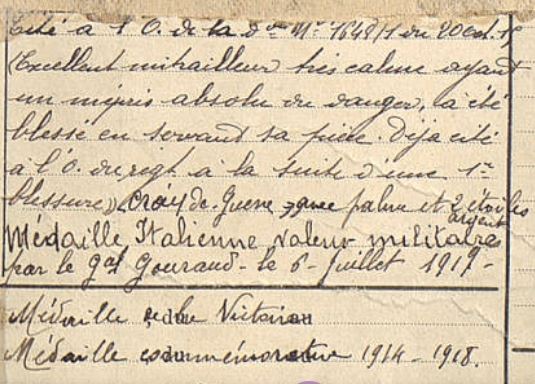 Cité à l'O. de la don No 1648/1 du 20 oct. 15
(Excellent mitrailleur très calme ayant
un mépris absolu du danger, a été
blessé en servant sa pièce. Déjà cité
à l'O. du regt à la suite d'une 1re
blessure) Croix de Guerre avec palme et 2 étoiles
argent
Médaille Italienne valeur militaire
par le gal Gouraud - le 6 - Juillet 1919 -
Médaille de la Victoire
Médaille commémorative 1914 - 1918.